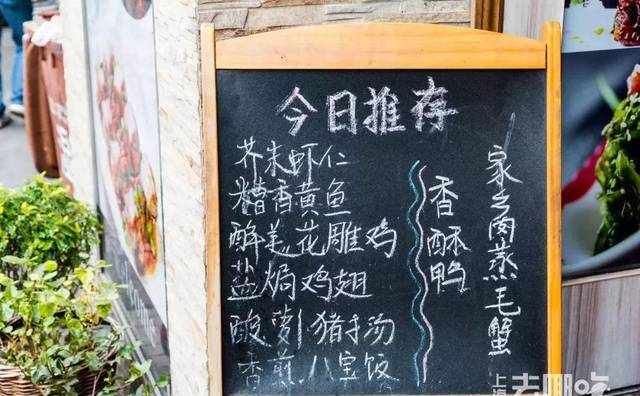 今日推荐
芥末虾仁
糟香黄鱼
醉美花雕鸡
盐焗鸡翅
酸萝卜猪手汤
香煎八宝饭
香酥鸭
家乡肉蒸毛蟹
去哪吃